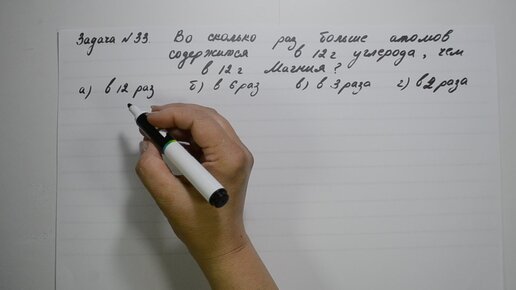 Задача №33. Во сколько раз больше атомов
содержится в 12 г углерода, чем
в 12 г Магния?
а) в 12 раз б) в 6 раз в) в 3 раза г) в 2 раза